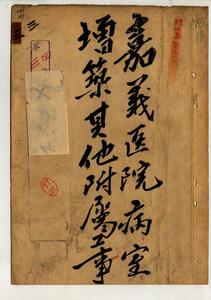 嘉義医院病室
増築其他附属工事